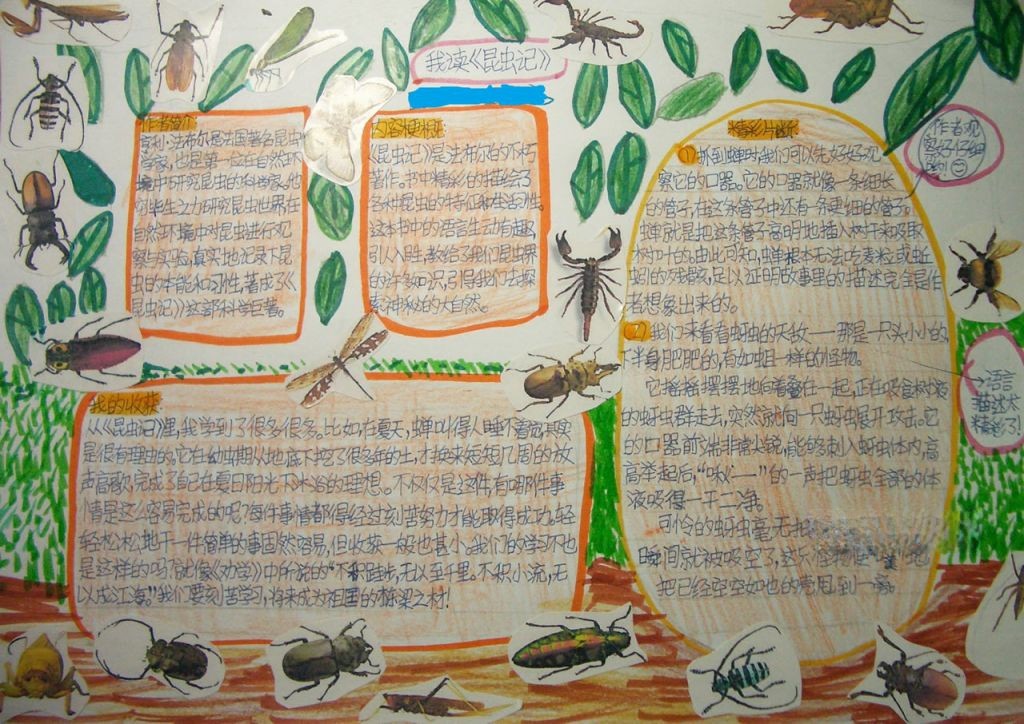 我读《昆虫记》
作者简介
亨利·法布尔是法国著名昆虫
学家,也是第一位在自然环
境中研究昆虫的科学家,他
穷毕生之力研究昆虫世界在
自然环境中对昆虫进行观
察与实验,真实地记录下昆
虫的本能和习性,著成了《
昆虫记》这部科学巨著。
内容梗概
《昆虫记》是法布尔的不朽
著作。书中精彩的描绘了
各种昆虫的特征和生活习性。
这本书中的语言生动有趣
引人入胜,教给了我们昆虫界
的许多知识,引得我们去探
索神秘的大自然。
精彩片断
①抓到蝉时我们可以先好好观
察它的口器。它的口器就像一条细长
的管子,在这条管子中还有一条更细的管子。
蝉就是把这条管子高明地插入树干来吸取
树汁的。由此可知,蝉根本无法吃麦粒或蚯
蚓的残骸,足以证明故事里的描述完全是作
者想象出来的。
②我们来看看蚜虫的天敌——那是一只头小小的,
下半身肥肥的,有如蛆一样的怪物。
它摇摇摆摆地向着叠在一起,正在吸食树液
的蚜虫群走去,突然就向一只蚜虫展开攻击。它
的口器前端非常尖锐,能够刺入蚜虫体内,高
高举起后,“啾——”的一声把蚜虫全部的体
液吸得一干二净。
可怜的蚜虫毫无抵
瞬间就被吸空了,这只怪物便 地
把已经空空如也的壳甩到一旁。
作者观
察好仔细
啊!
语言
描述太
精彩了!
我的收获
从《昆虫记》里,我学到了很多很多。比如在夏天,蝉叫得人睡不着觉,其实
是很有理由的,它在幼虫期从地底下挖了很多年的土,才换来短短几周的放
声高歌,完成了自己在夏日阳光下沐浴的理想。不仅仅是这件,有哪件事
情是这么容易完成的呢?每件事情都得经过刻苦努力才能取得成功,轻
轻松松地干一件简单的事固然容易,但收获一般也甚小。我们的学习不也
是这样的吗?就像《劝学》中所说的“不积跬步,无以至千里。不积小流,无
以成江海。”我们要刻苦学习,将来成为祖国的栋梁之材!